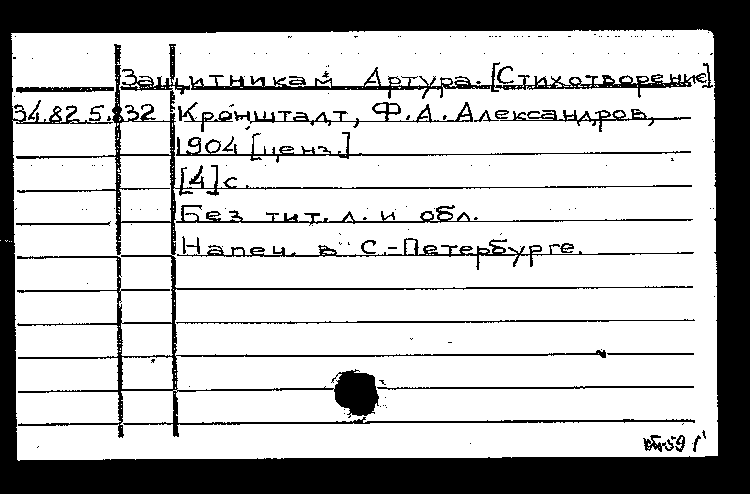 Защитникам Артура. [Стихотворение]
34.82.5.832 Кронштадт, Ф.А.Александров,
1904 [ценз.]
[4] с.
Без тит. л. и обл.
Напеч. в С.-Петербурге.